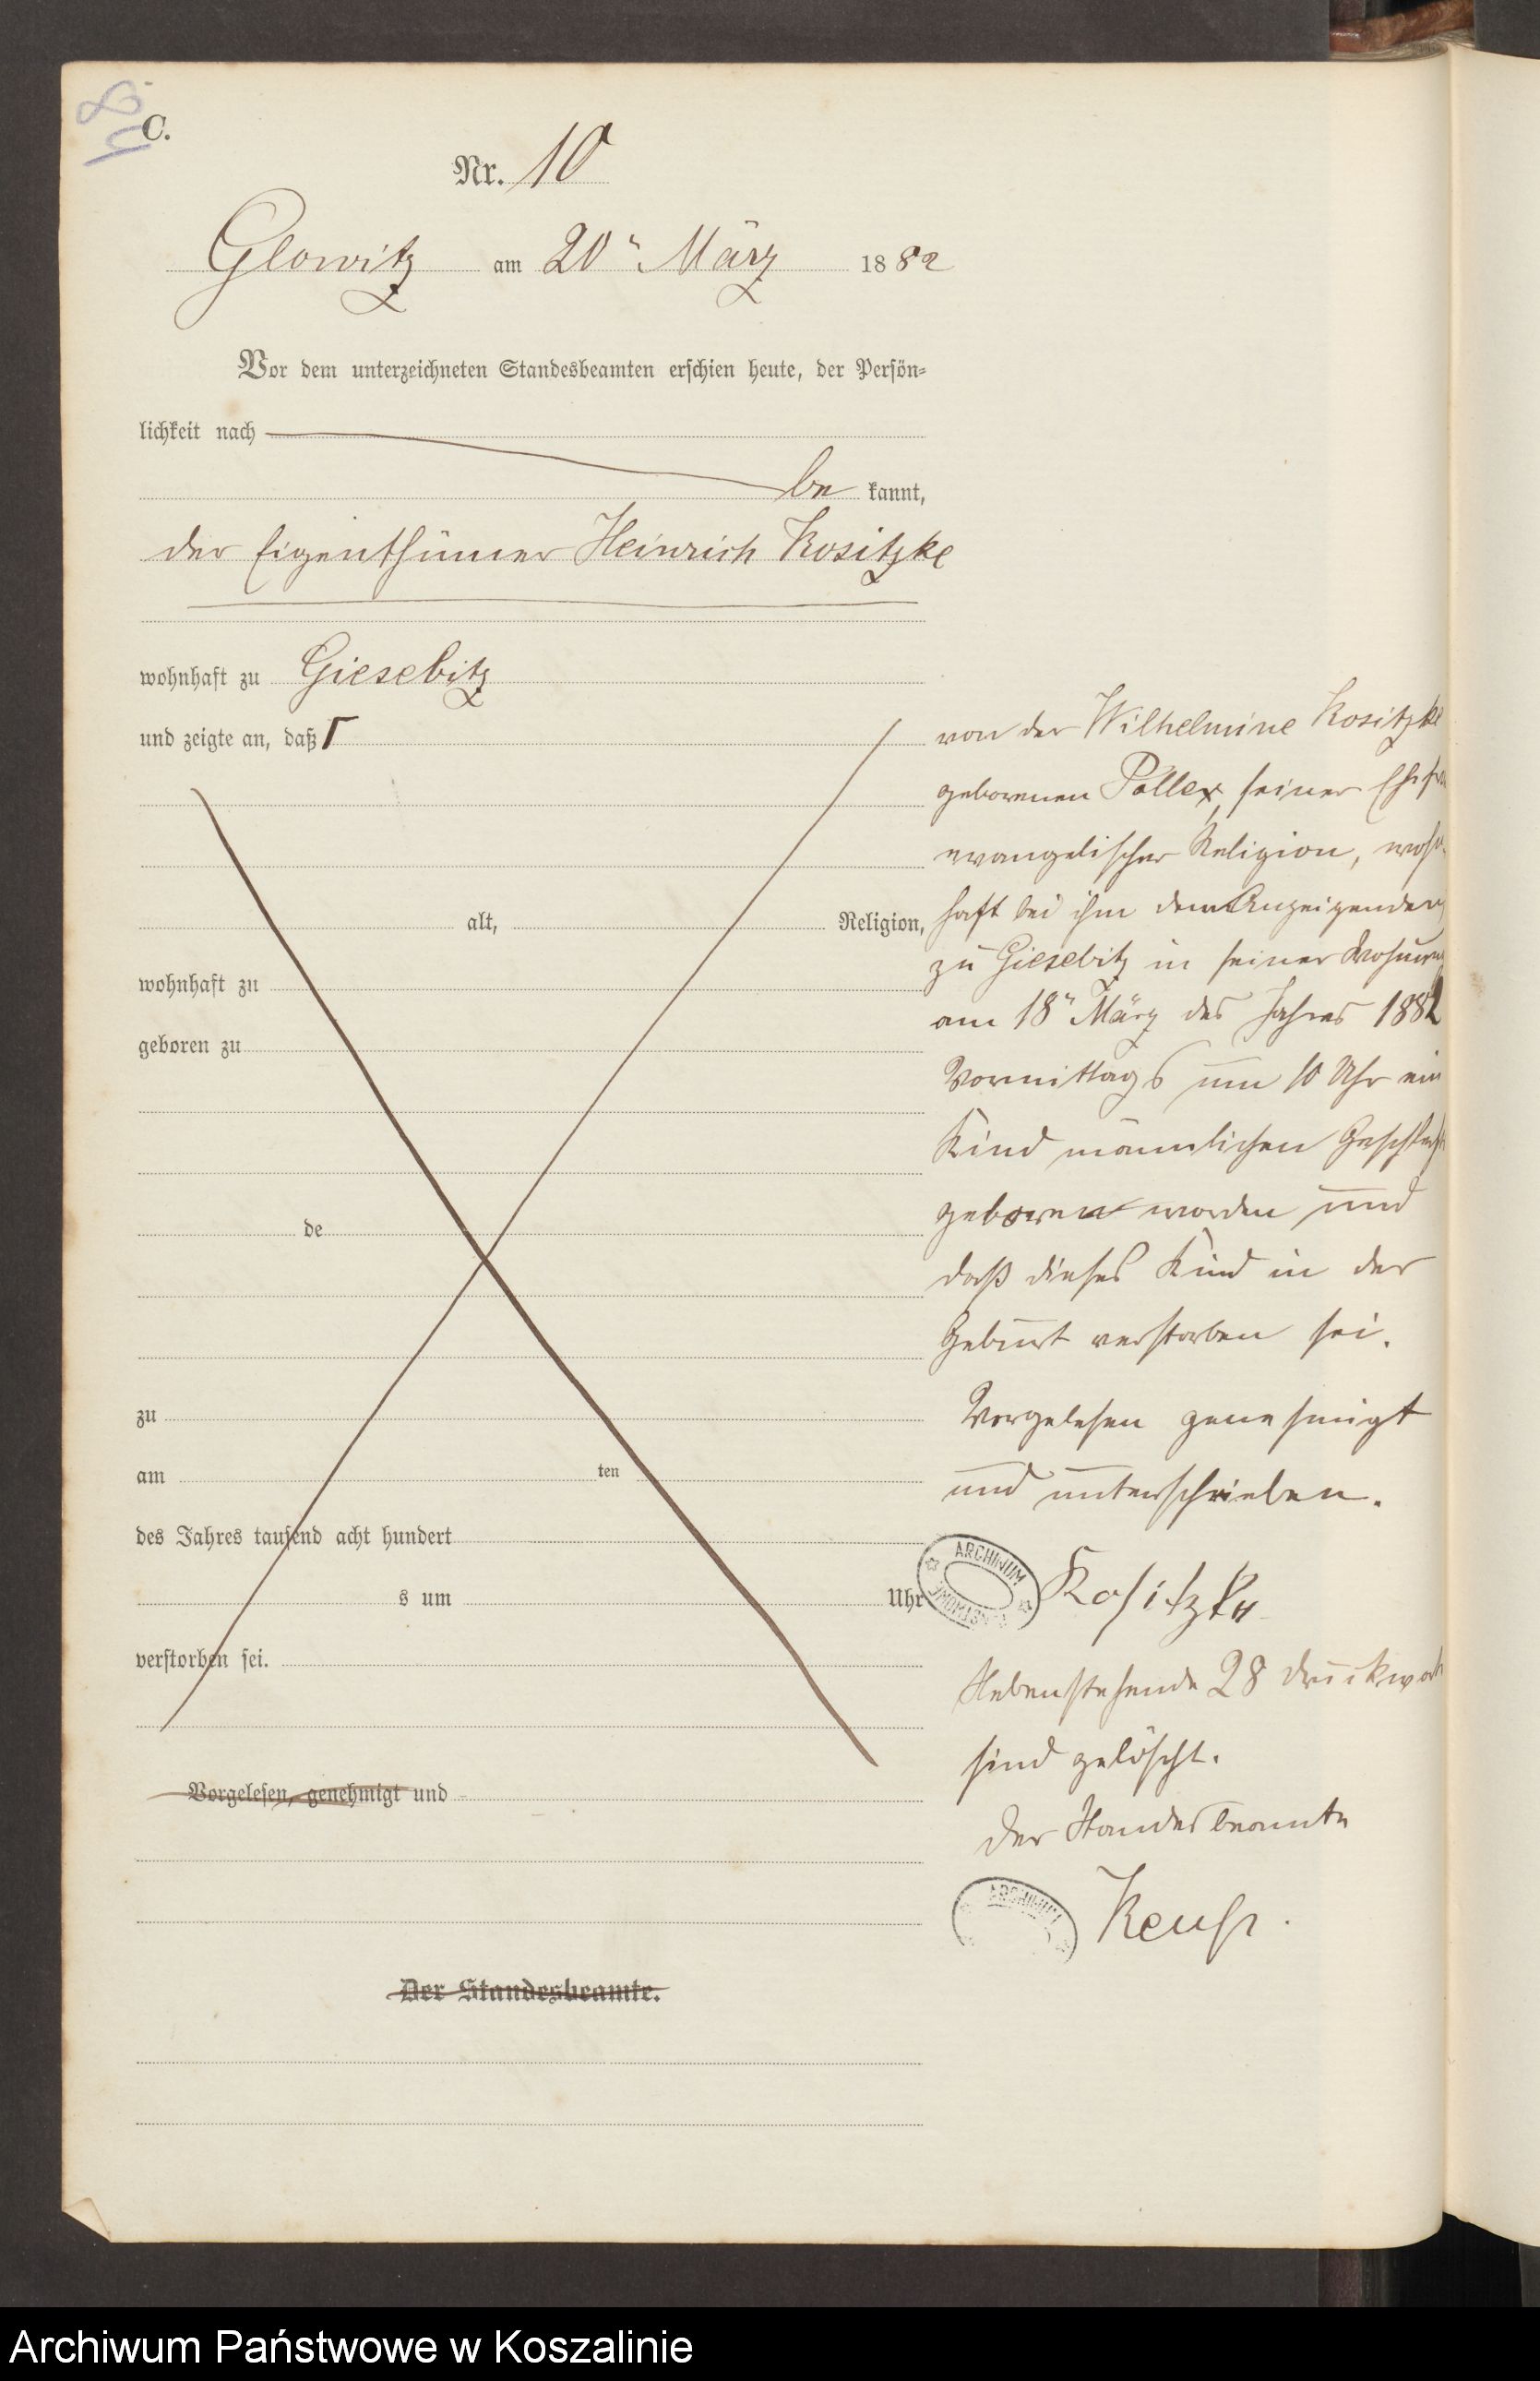 C.
Nr. 10
Glowitz am 20ⁿ März 1882
Vor dem unterzeichneten Standesbeamten erschien heute, der Persön-
lichkeit nach
be kannt,
der Eigenthümer Heinrich Kositzke
wohnhaft zu Giesebitz
und zeigte an, daß Γ
alt, Religion,
wohnhaft zu
geboren zu
de
zu
am ten
des Jahres tausend acht hundert
s um Uhr
verstorben sei.
Vorgelesen, genehmigt und
Der Standesbeamte.
von der Wilhelmine Kositzke
geborenen Pollex, seiner Ehefrau
evangelischer Religion, wohn-
haft bei ihm dem Anzeigenden
zu Giesebitz in seiner Wohnung
am 18ⁿ März des Jahres 1882
Vormittags um 10 Uhr ein
Kind männlichen Geschlechts
geboren worden und
daß dieses Kind in der
Geburt verstorben sei.
Vorgelesen genehmigt
und unterschrieben.
ARCHIWUM
Kositzke
Nebenstehende 28 Druckworte
sind gelöscht.
Der Standesbeamte
ARCHIWUM
Archiwum Państwowe w Koszalinie